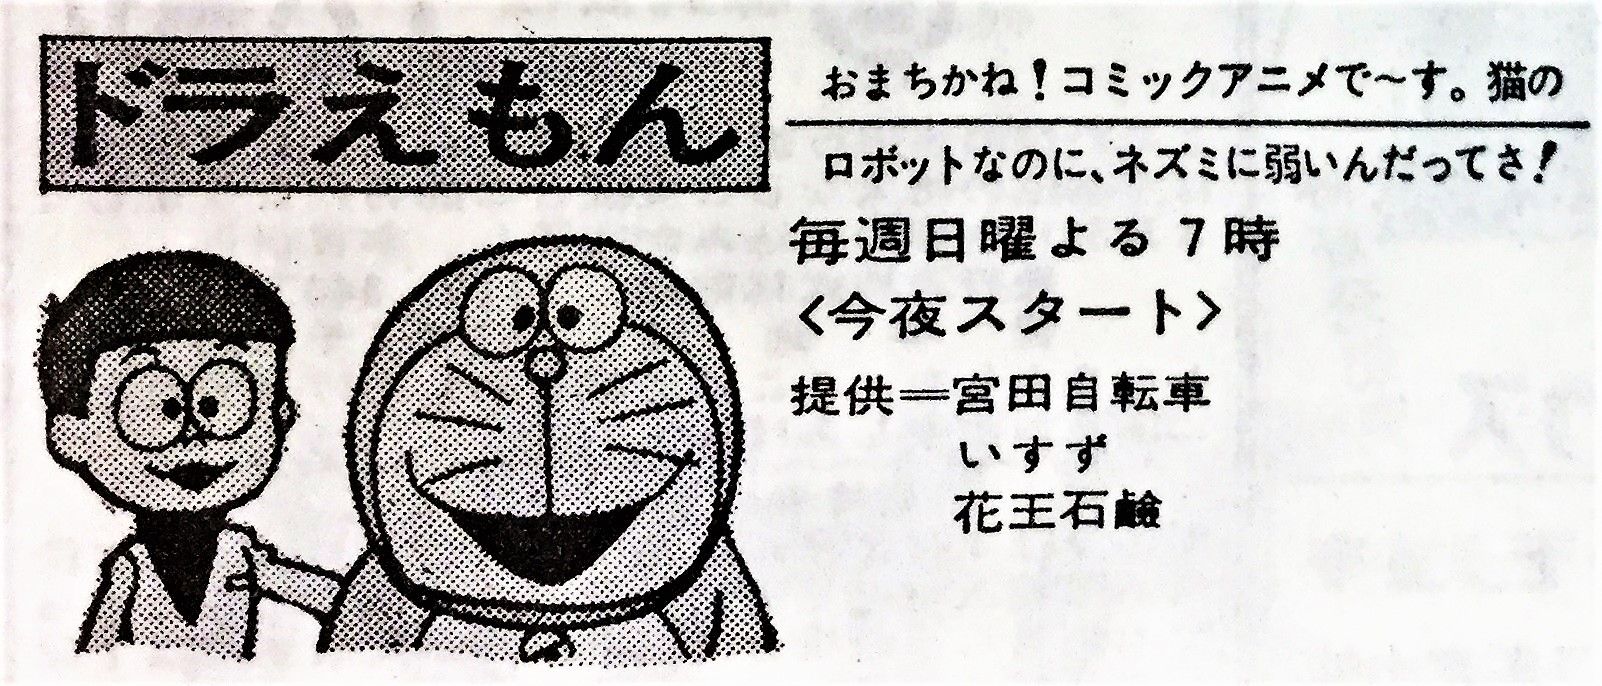 ドラえもん
おまちかね!コミックアニメで〜す。猫の
ロボットなのに、ネズミに弱いんだってさ!
毎週日曜よる7時
<今夜スタート>
提供=宮田自転車
いすず
花王石鹸